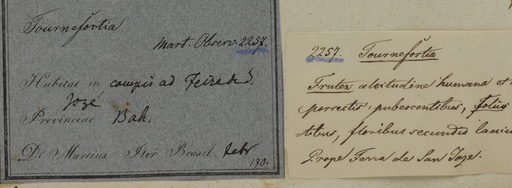 Tournefortia
Mart. Observ. 2257.
Habitat in campis ad Feira de S.
Joze
Provinciae Bah.
Dr. Martius Iter Brasil. Febr
2257. Tournefortia
Frutex altitudine humana et
porrectis pubescentibus, foliis
floribus secundis
Prope Ferra de San Joze.